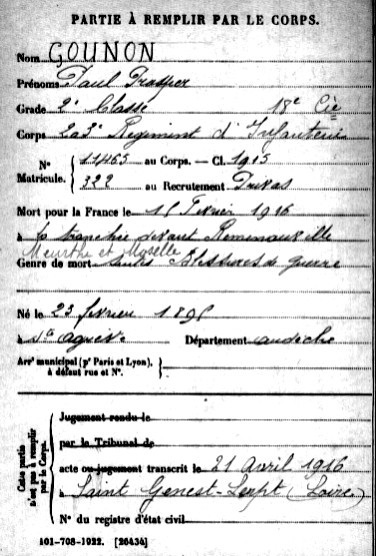 PARTIE À REMPLIR PAR LE CORPS.
Nom GOUNON
Prénoms Paul Prosper
Grade 2e Classe 18e Cie
Corps 223e Régiment d'Infanterie
N° Matricule. { 11465 au Corps. — Cl. 1915
322 au Recrutement Privas
Mort pour la France le 15 Février 1916
à la tranchée devant Reménoville
Meurthe et Moselle
Genre de mort suites Blessures de guerre
Né le 23 février 1895
à St Agrève Département Ardèche
Arrt municipal (pr Paris et Lyon),
à défaut rue et N°.
Cette partie n'est pas à remplir par le Corps.
Jugement rendu le
par le Tribunal de
acte ou jugement transcrit le 21 Avril 1916
à Saint Genest-Lerpt (Loire)
N° du registre d'état civil
101-708-1922. [26434]